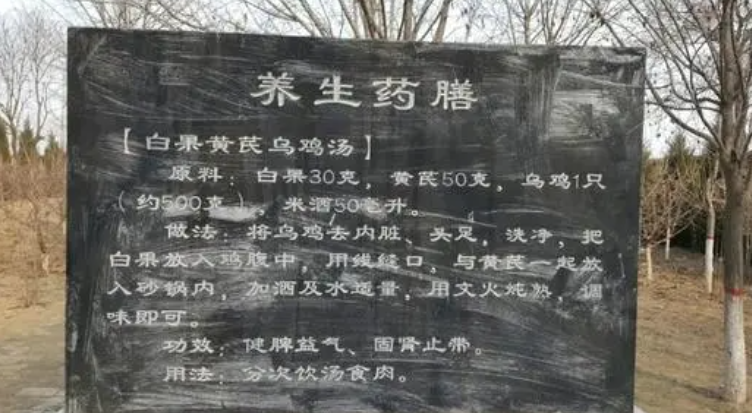 养生药膳
【白果黄芪乌鸡汤】
原料：白果30克，黄芪50克，乌鸡1只
（约500克），米酒50毫升。
做法：将乌鸡去内脏、头足，洗净，把
白果放入鸡腹中，用线缝口，与黄芪一起放
入砂锅内，加酒及水适量，用文火炖熟，调
味即可。
功效：健脾益气、固肾止带。
用法：分次饮汤食肉。